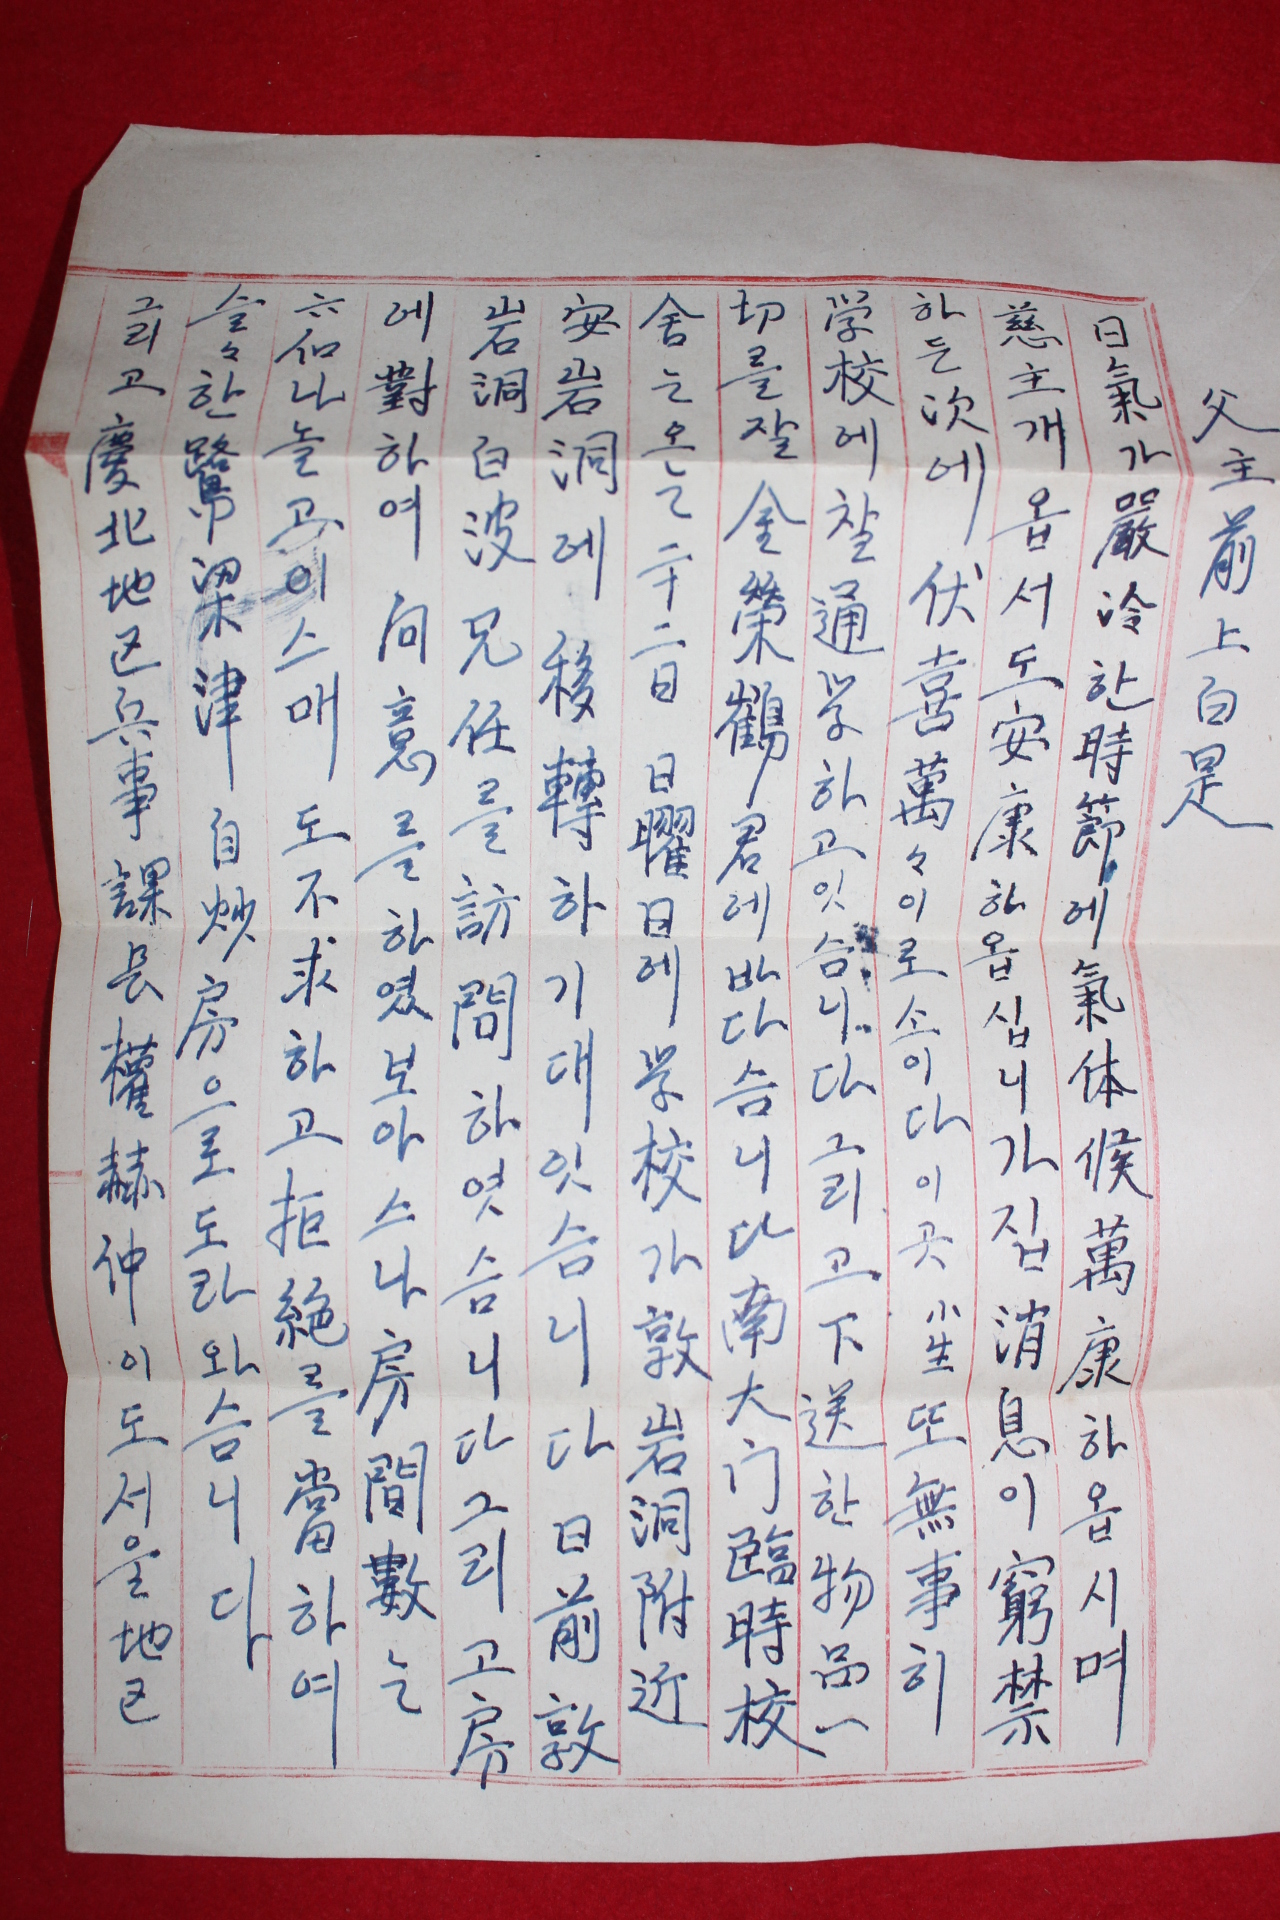 父主前上白是
日氣가嚴冷한時節에氣体候萬康하옵시며
慈主개옵서도安康하옵심니가집消息이窮禁
하든次에伏喜萬々이로소이다이곳小生또無事히
学校에찰通学하고잇슴니다그리고下送한物品一
切를잘金榮鶴君에바다슴니다南大门臨時校
舍는온는二十二日日曜日에学校가敦岩洞附近
安岩洞에移轉하기대잇슴니다日前敦
岩洞白波兄任를訪問하엿슴니다그리고房
에對하여问意를하엿보아스나房間數는
六仙나놀고이스매도不求하고拒絶를當하여
슬々한鷺梁津自炒房으로도라와슴니다
그리고慶北地区兵事課長權赫仲이도서울地区